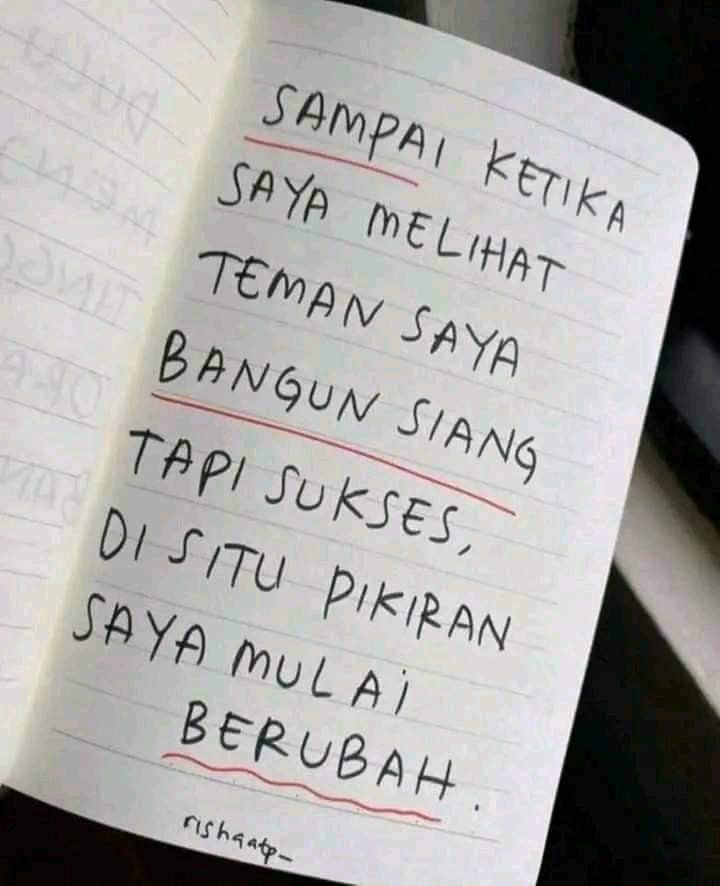 SAMPAI KETIKA
SAYA MELIHAT
TEMAN SAYA
BANGUN SIANG
TAPI SUKSES,
DI SITU PIKIRAN
SAYA MULAI
BERUBAH.
rishaatp_